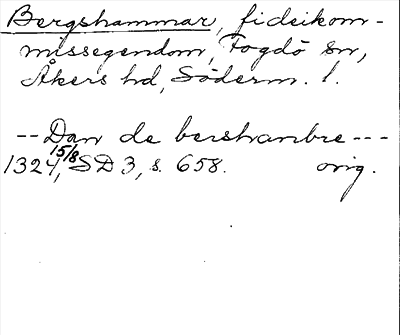 Bergshammar, fideikom-
missegendom, Fogdö sn,
Åkers hd, Söderm. l.
-- Dan de bershambre ---
1324 15/8, SD 3, s. 658. orig.